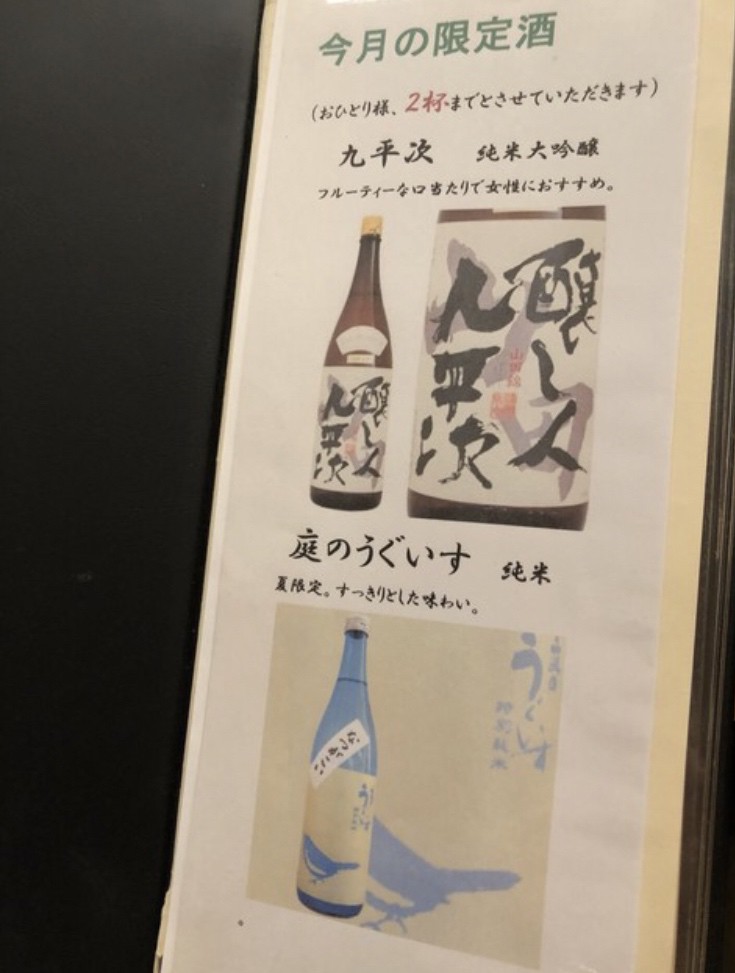 今月の限定酒
(おひとり様、2杯までとさせていただきます)
九平次 純米大吟醸
フルーティーな口当たりで女性におすすめ。
醸し人
九平次
醸し人
九平次
山田錦
庭のうぐいす 純米
夏限定。すっきりとした味わい。
うぐいす
特別純米
なつがこい
うぐいす